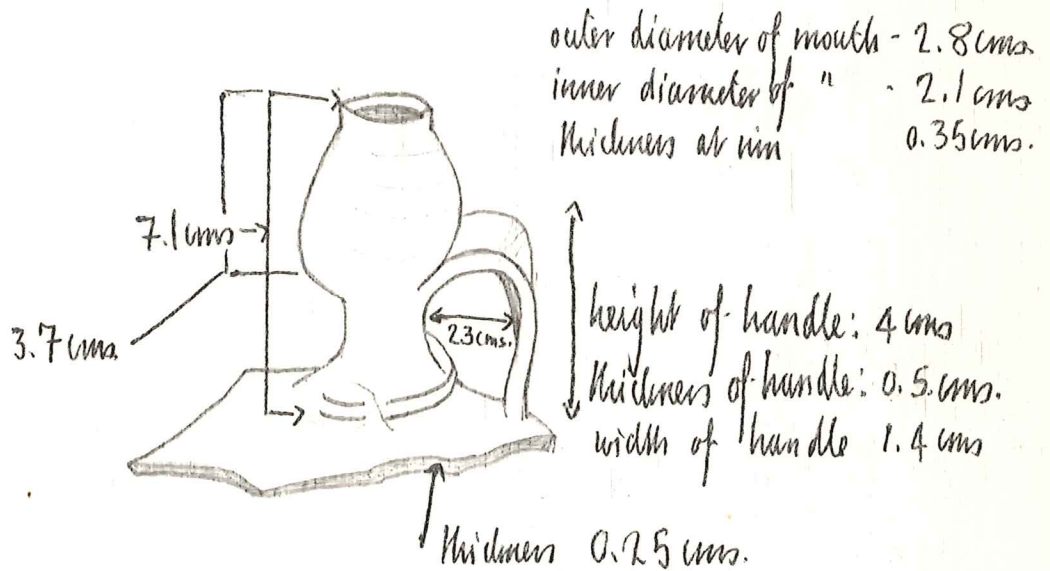 outer diameter of mouth - 2.8cms.
inner diameter of " - 2.1cms
thickness at rim 0.35cms.
7.1cms
3.7cms.
2.3cms.
height of handle: 4cms
thickness of handle: 0.5.cms.
width of handle 1.4cms
thickness 0.25cms.